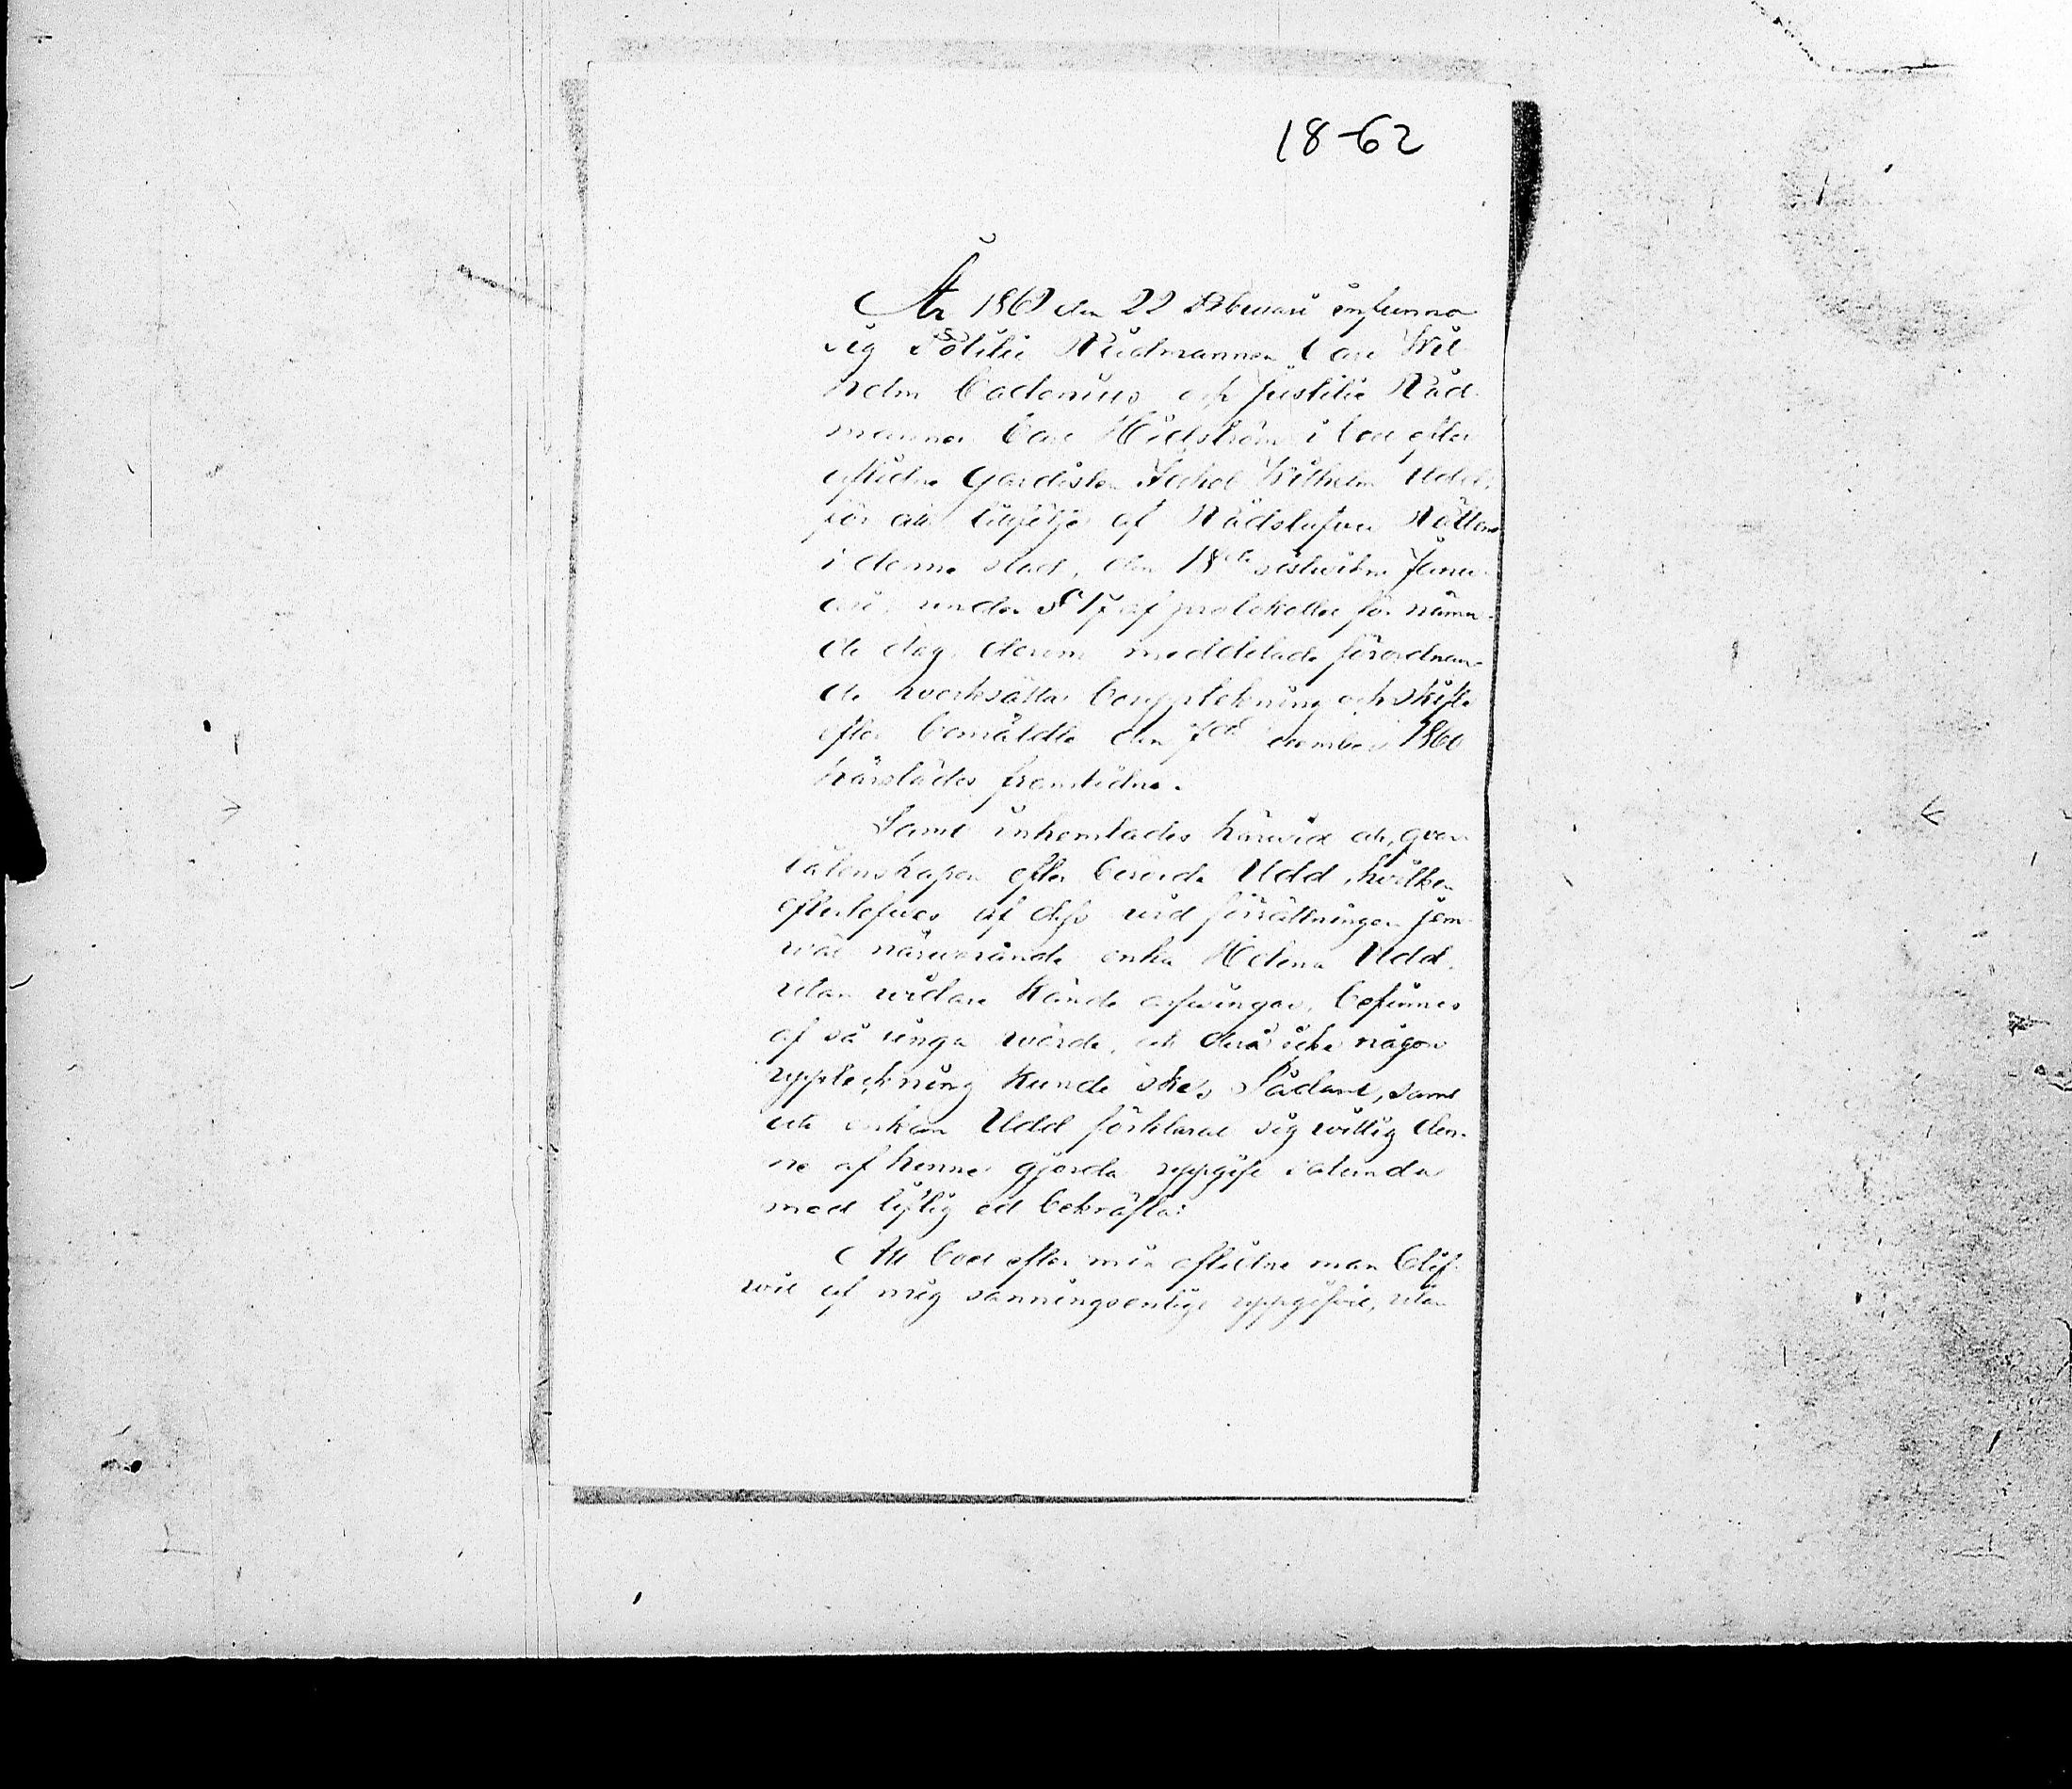 18-62
År 1862 den 22 Februari infunno
sig Politie Rådmannen Carl Wil-
helm Cadenius och Justitie Råd-
mannen Carl Hedström i boet efter
aflidne gardisten Wilhelm Udd,
för att till följe af Rådstufvu Rättens
i denne stad, den 18de sistvikne Janu-
ari, under § 17 af protokollet för nämn-
de dag, derom meddelade förordnan-
de werkställa bouppteckning och skifte
efter bemäldte den 7de december 1860
härstädes framlidne.
Samt inhemtades härwid att, qvar-
låtenskapen efter berörde Udd, hvilken
efterlefves af dess wid förrättningen jem-
wäl närwarande enka Helena Udd,
utan widare kände arfvingar, befunnes
af så ringa wärde, att deraf icke någon
uppteckning kunde ske, Sådant, samt
att enkan Udd förklarat sig willig den-
ne af henne gjorda uppgift i
med liflig ed bekräfta:
Att boet efter min aflidne man blif-
wit af mig sanningsenligt uppgifvet, utan